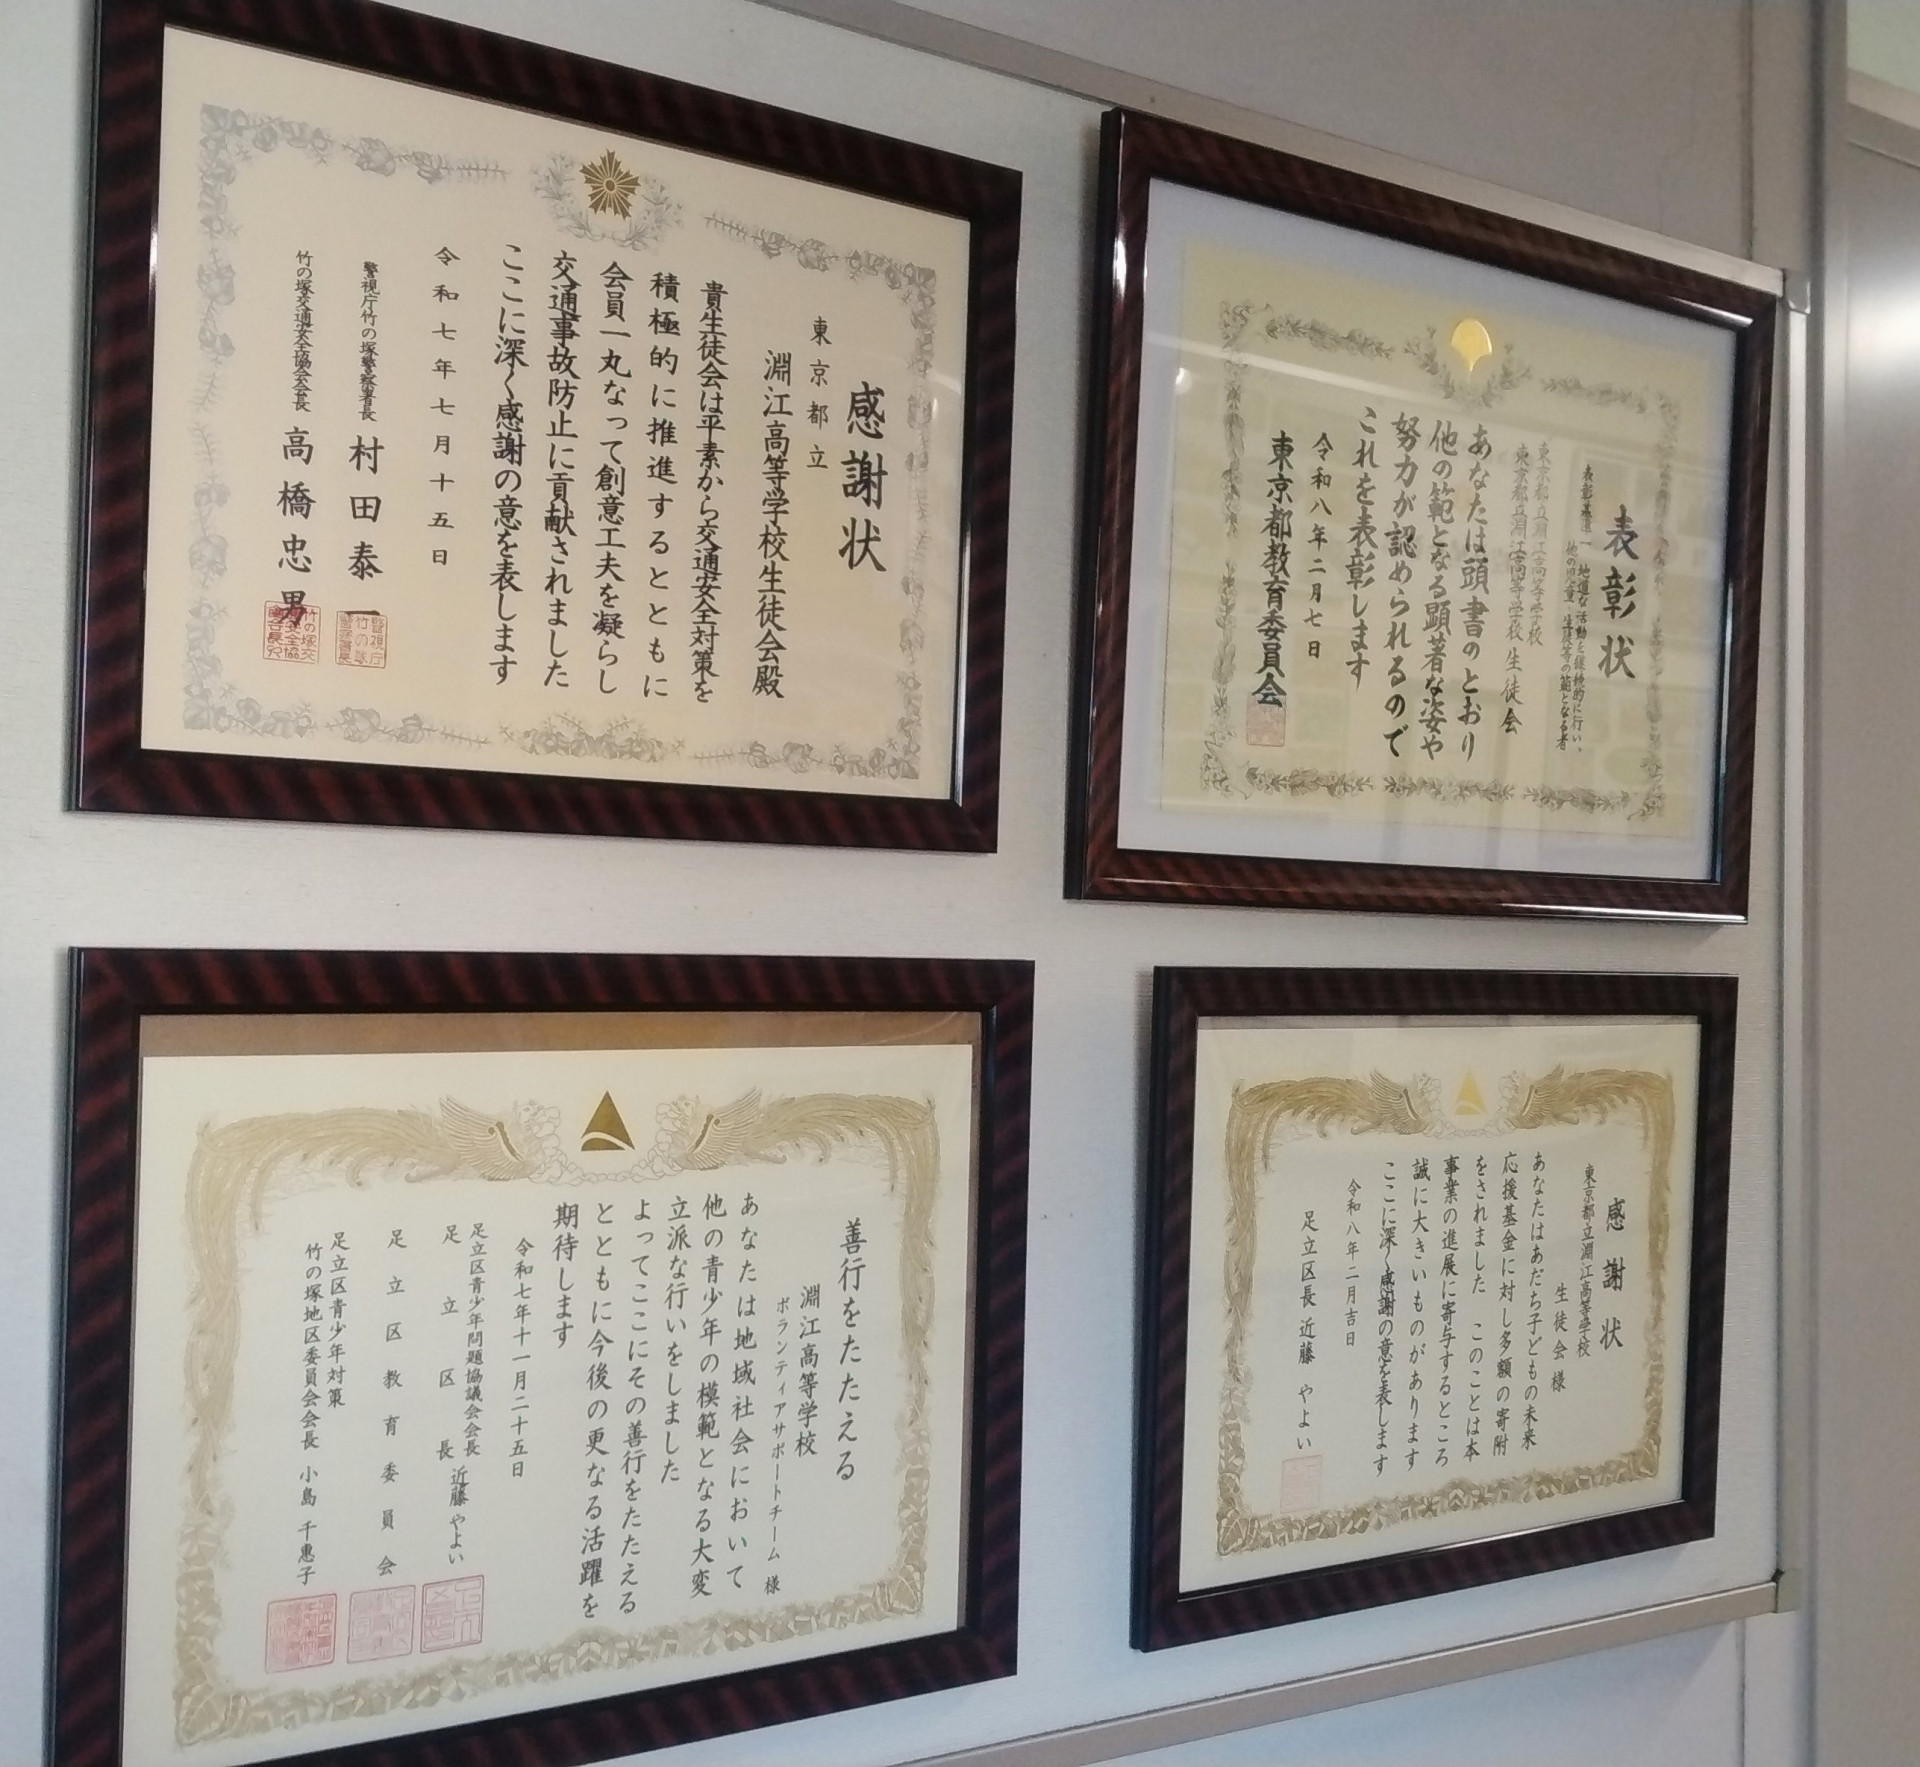 感謝状
東京都立
淵江高等学校生徒会殿
貴生徒会は平素から交通安全対策を
積極的に推進するとともに
会員一丸なって創意工夫を凝らし
交通事故防止に貢献されました
ここに深く感謝の意を表します
令和七年七月十五日
警視庁竹の塚警察署長 村田泰一
竹の塚交通安全協会会長 高橋忠男
表彰状
表彰基準一 地道な活動を継続的に行い、
他の児童・生徒等の範となる者
東京都立淵江高等学校
東京都立淵江高等学校 生徒会
あなたは頭書のとおり
他の範となる顕著な姿や
努力が認められるので
これを表彰します
令和八年二月七日
東京都教育委員会
善行をたたえる
淵江高等学校
ボランティアサポートチーム 様
あなたは地域社会において
他の青少年の模範となる大変
立派な行いをしました
よってここにその善行をたたえる
とともに今後の更なる活躍を
期待します
令和七年十一月二十五日
足立区青少年問題協議会会長
足立区長 近藤やよい
足立区教育委員会
足立区青少年対策
竹の塚地区委員会会長 小島千恵子
感謝状
東京都立淵江高等学校
生徒会様
あなたはあだち子どもの未来
応援基金に対し多額の寄附
をされました このことは本
事業の進展に寄与するところ
誠に大きいものがあります
ここに深く感謝の意を表します
令和八年二月吉日
足立区長 近藤 やよい